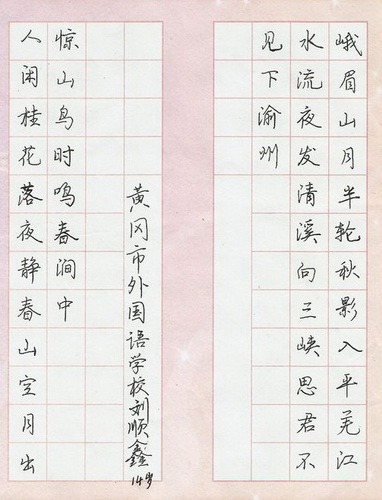 峨眉山月半轮秋影入平羌江
水流夜发清溪向三峡思君不
见下渝州
人闲桂花落夜静春山空月出
惊山鸟时鸣春涧中
黄冈市外国语学校刘顺鑫14岁